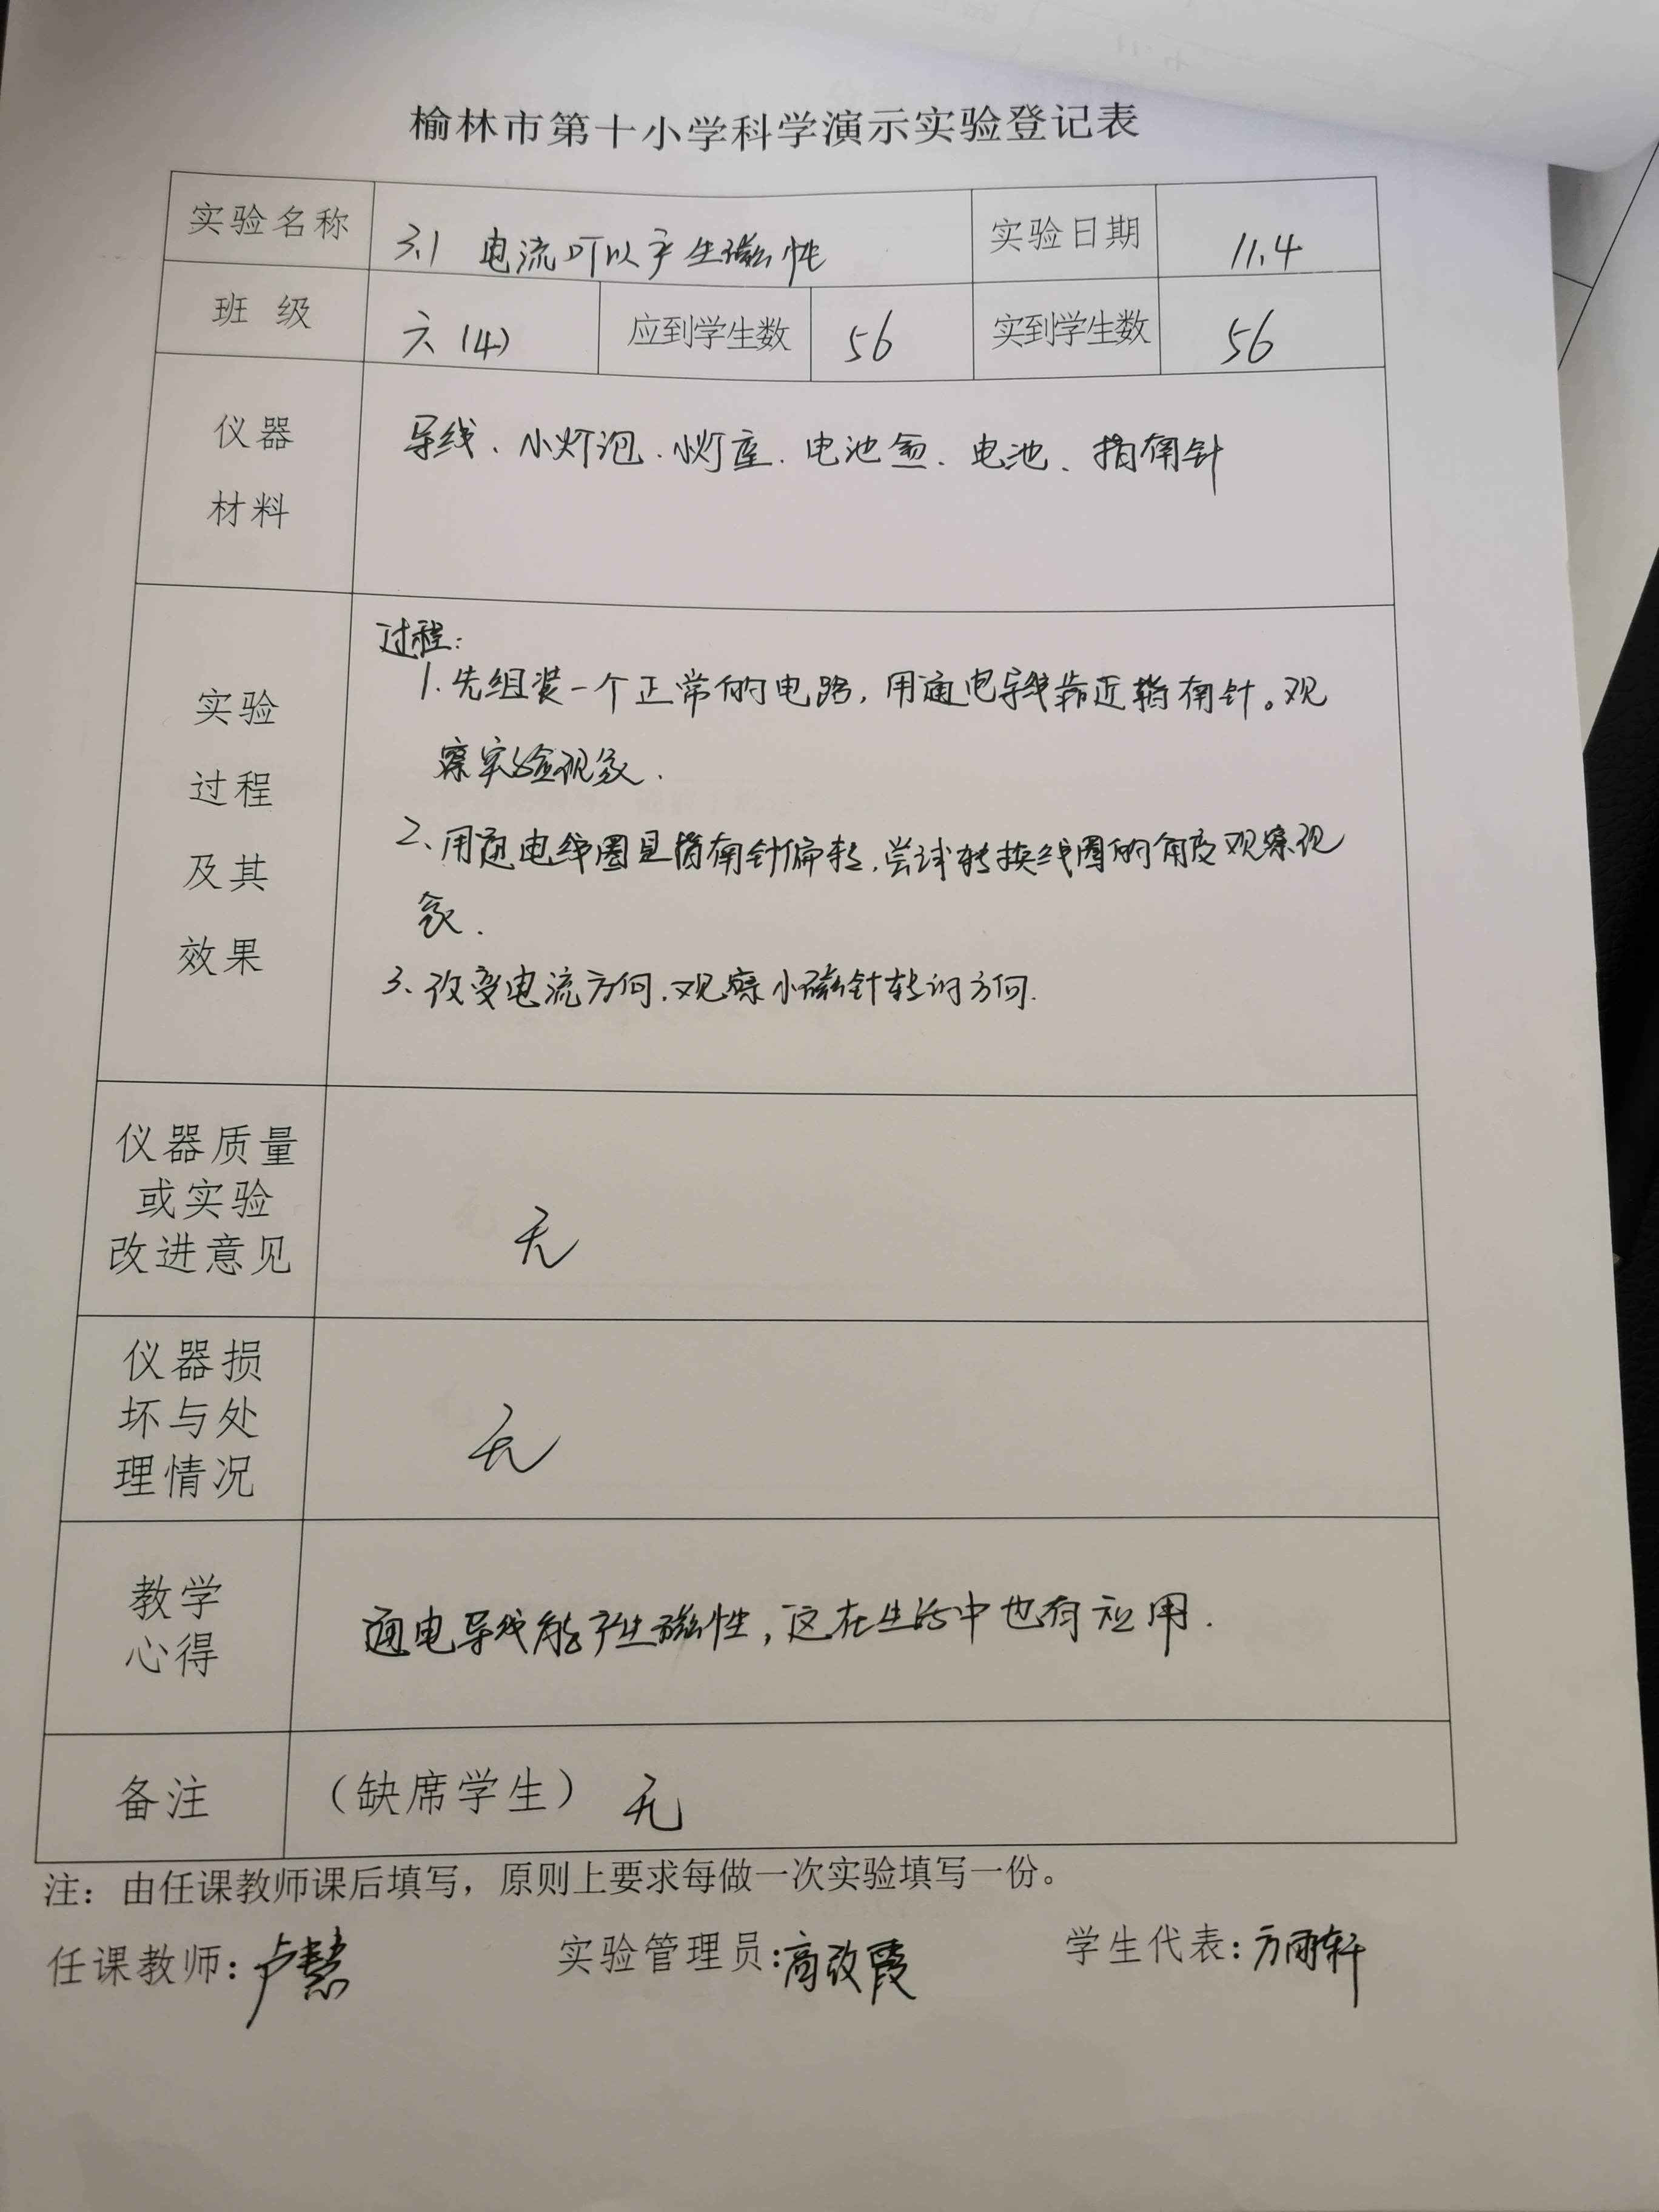 榆林市第十小学科学演示实验登记表
实验名称 3.1 电流可以产生磁性 实验日期 11.4
班 级 六(4) 应到学生数 56 实到学生数 56
仪器
材料
导线、小灯泡、小灯座、电池盒、电池、指南针
实验
过程
及其
效果
过程:
1.先组装一个正常的电路,用通电导线靠近指南针。观
察实验现象.
2、用通电线圈是指南针偏转,尝试转换线圈的角度观察现
象.
3、改变电流方向,观察小磁针转的方向.
仪器质量
或实验
改进意见
无
仪器损
坏与处
理情况
无
教学
心得
通电导线能产生磁性,这在生活中也有应用.
备注 (缺席学生) 无
注:由任课教师课后填写,原则上要求每做一次实验填写一份。
任课教师:卢慧 实验管理员:高改霞 学生代表:方雨轩